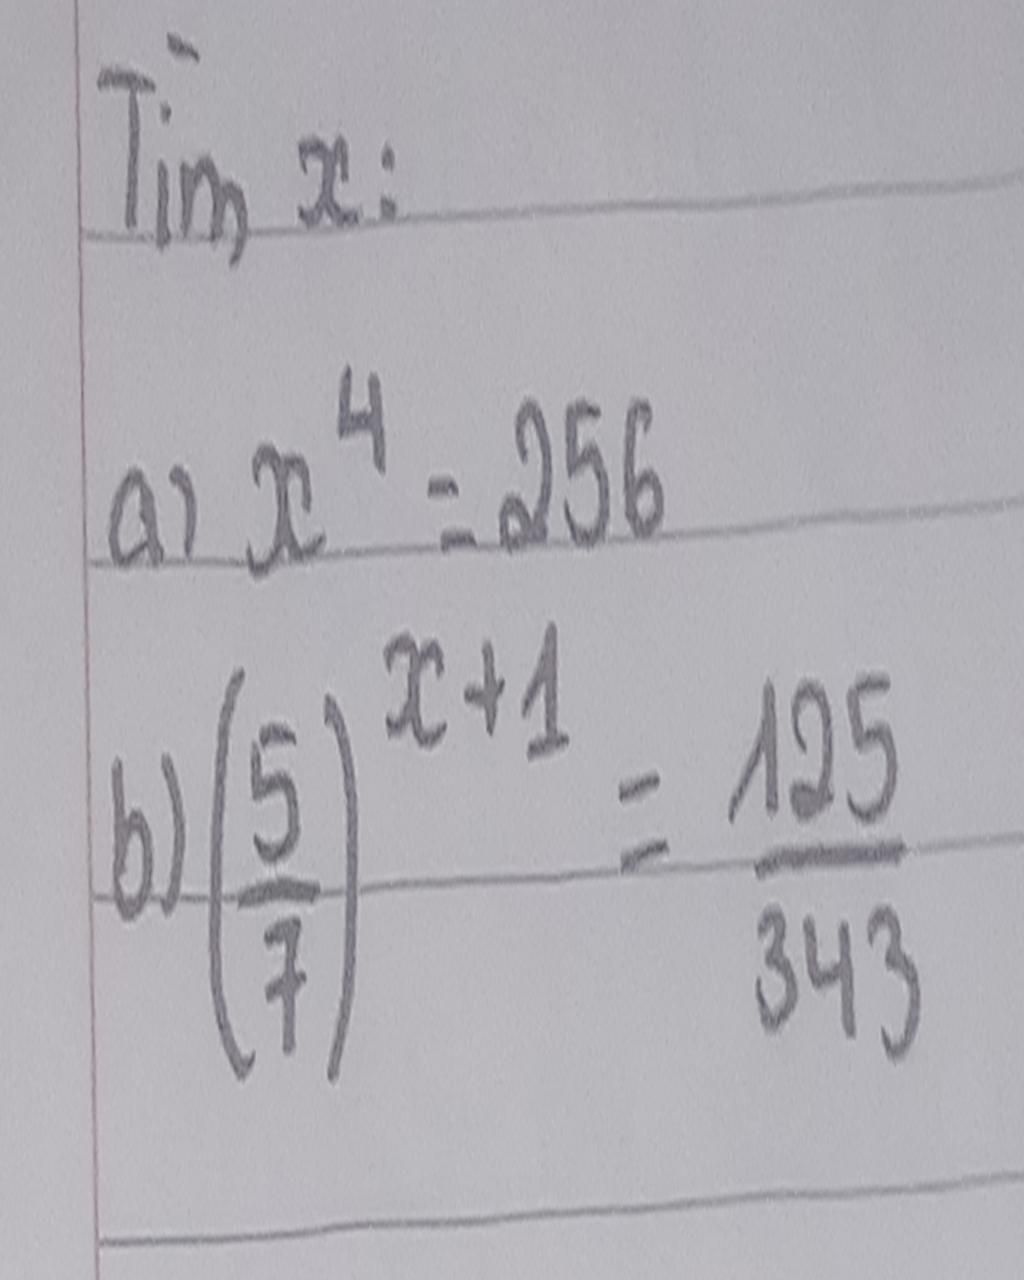 Tìm x:
a) x⁴ = 256
b) (5/7)^(x+1) = 125/343